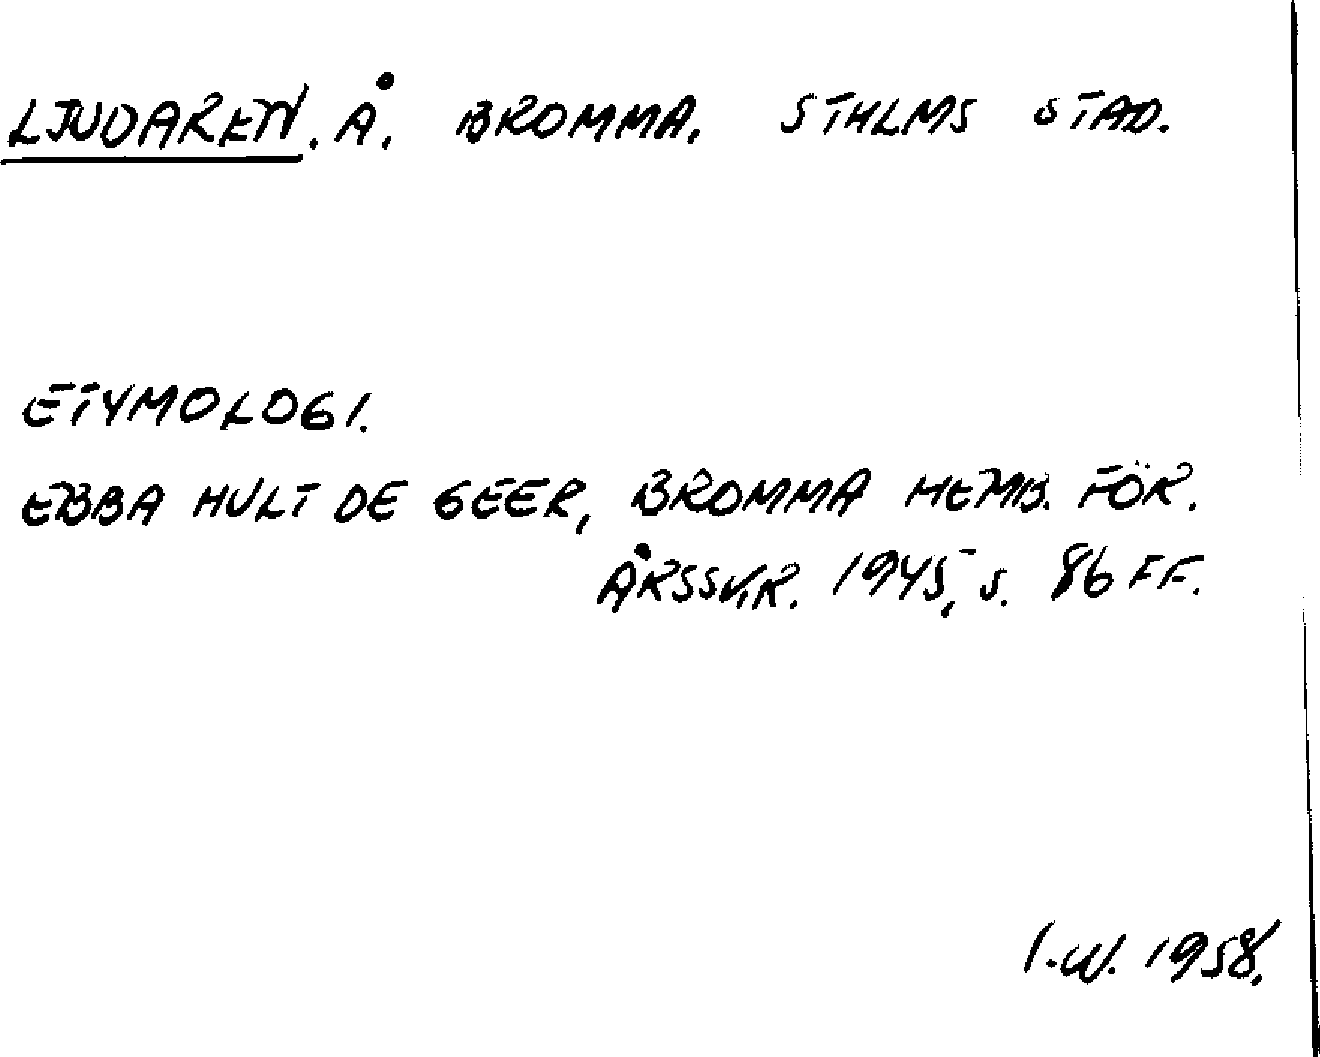 LJUDAREN. Å. BROMMA. STHLMS STAD.
ETYMOLOGI.
EBBA HULT DE GEER, BROMMA HEMB. FÖR.
ÅRSSKR. 1945, s. 86 FF.
I.W. 1958.